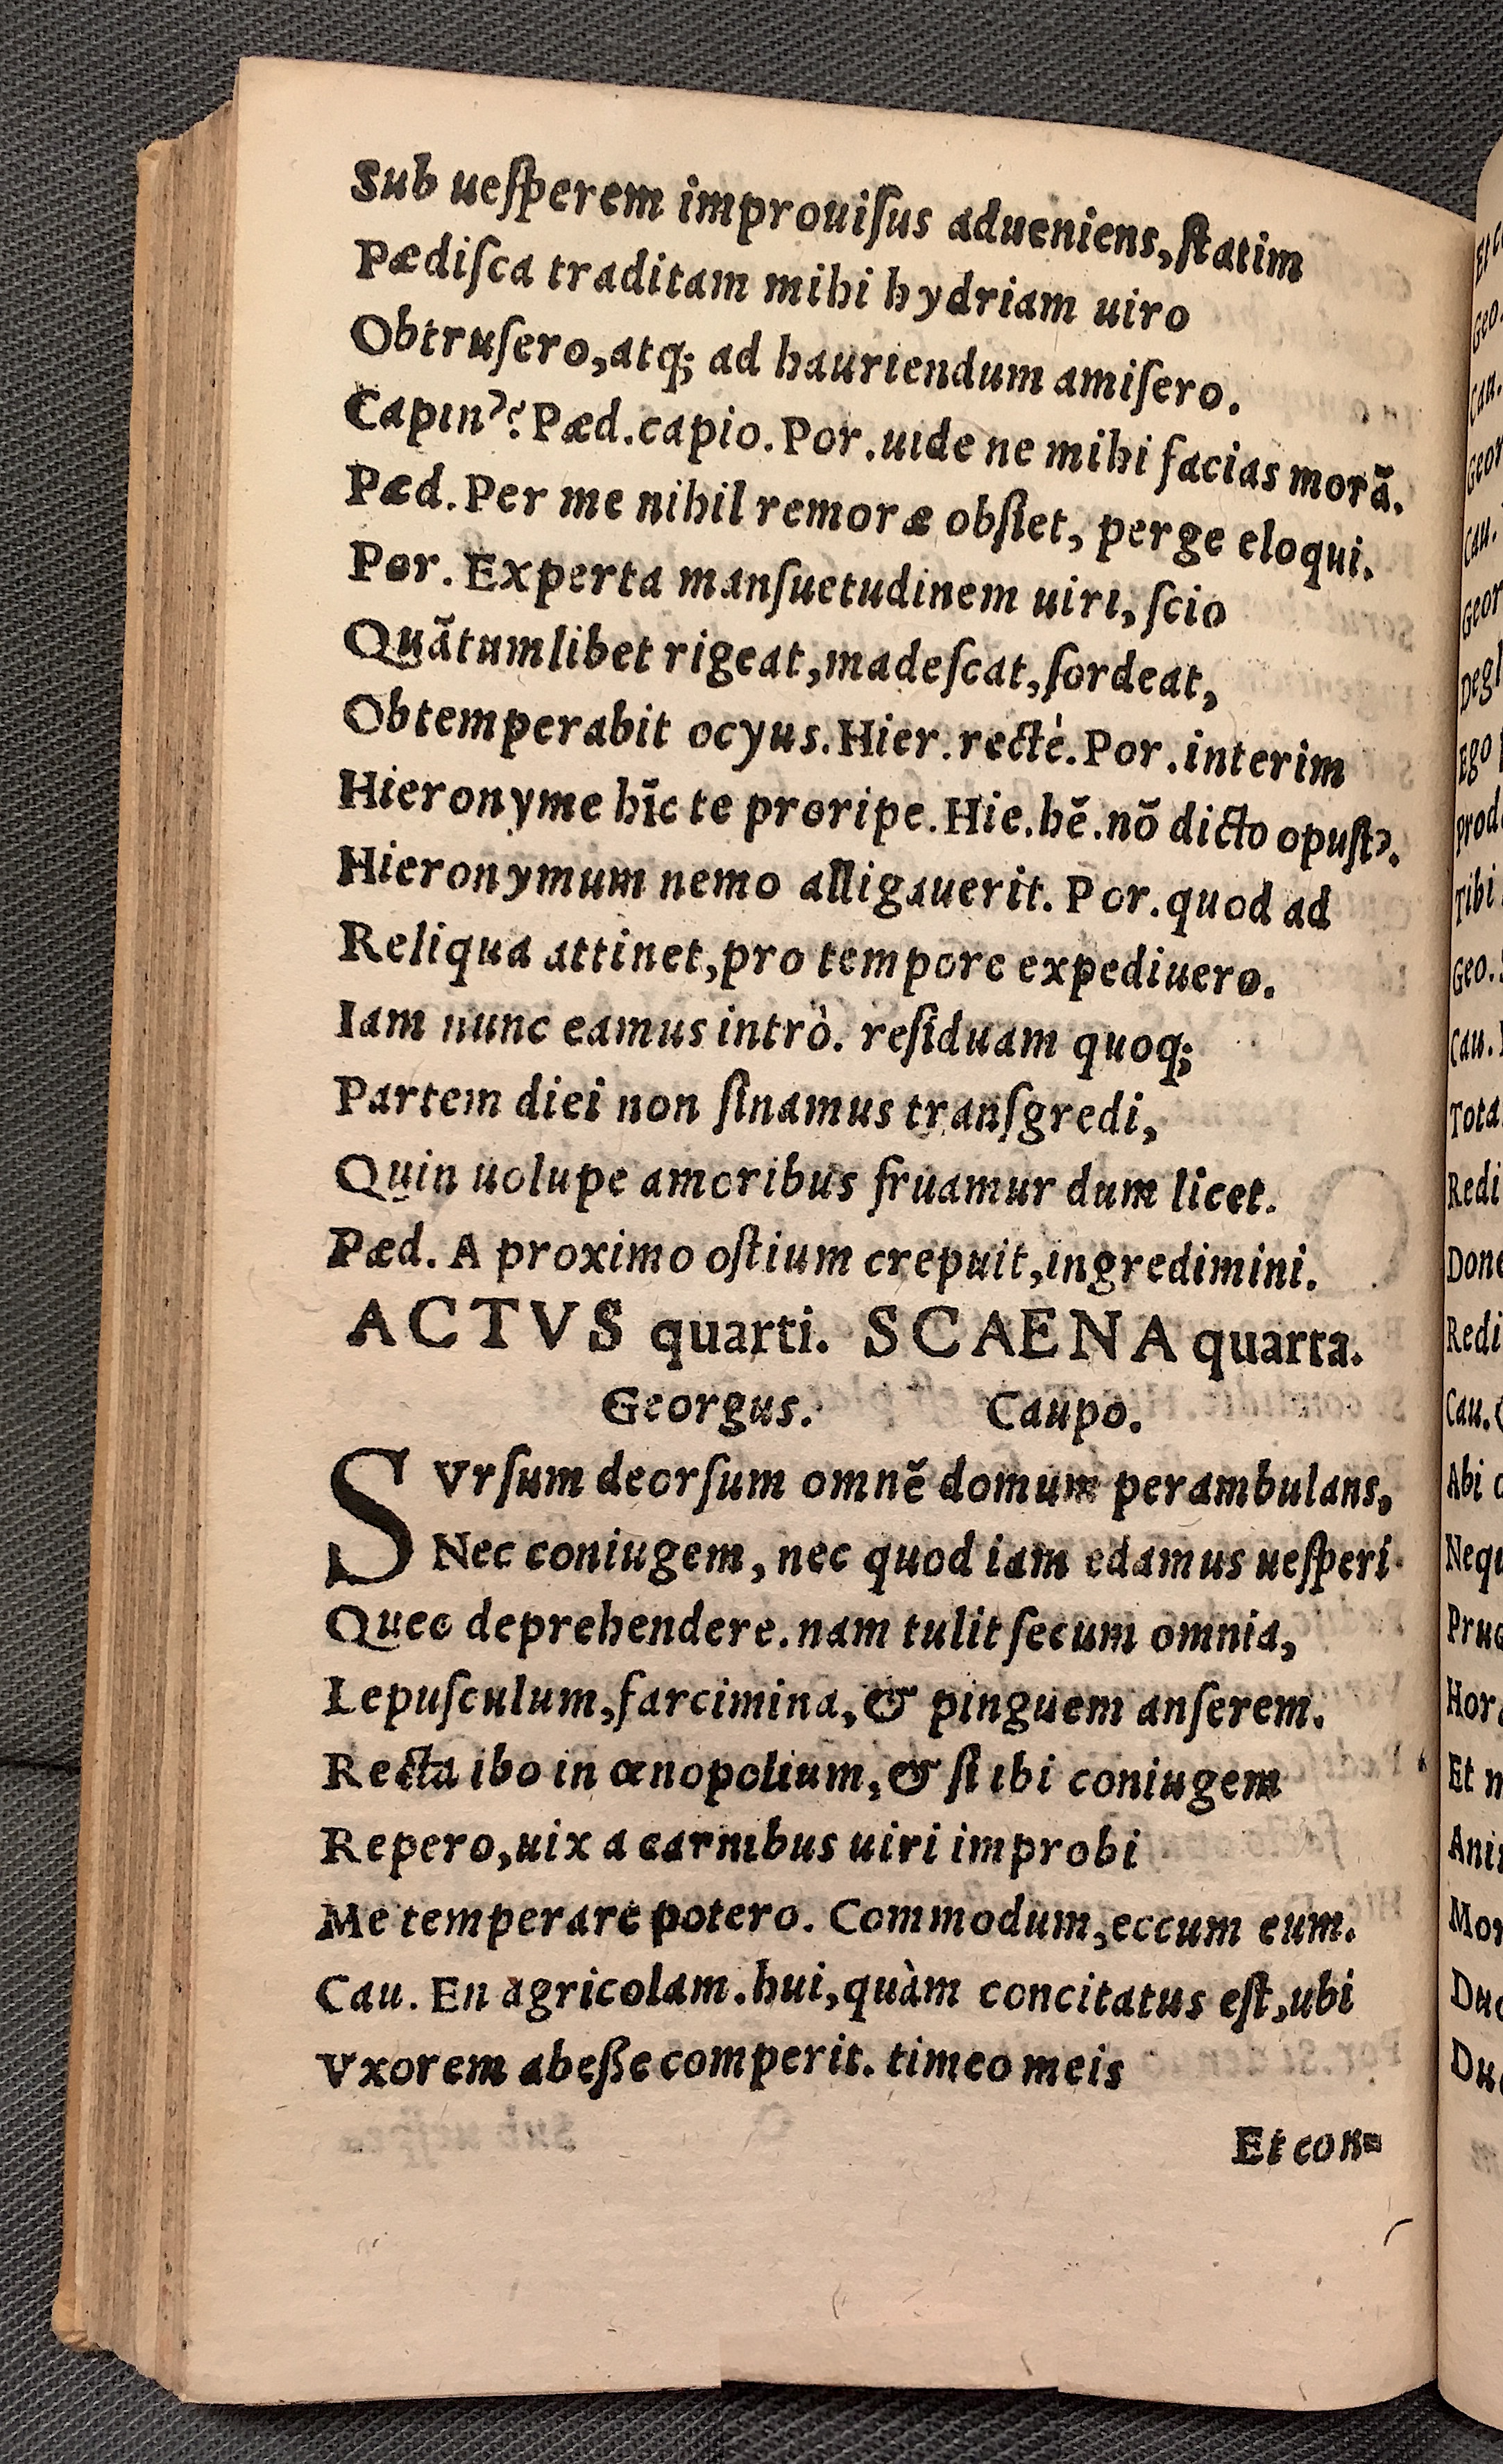 Sub ueſperem improuiſus adueniens, ſtatim
Pædiſca traditam mihi hydriam uiro
Obtruſero, atq; ad hauriendum amiſero.
Capin'? Pæd. capio. Por. uide ne mihi facias morã.
Pæd. Per me nihil remoræ obſiet, perge eloqui.
Por. Experta manſuetudinem uiri, ſcio
Quãtumlibet rigeat, madeſcat, ſordeat,
Obtemperabit ocyus. Hier. rectè. Por. interim
Hieronyme hīc te proripe. Hie. hẽ. nõ dicto opuſt'.
Hieronymum nemo alligauerit. Por. quod ad
Reliqua attinet, pro tempore expediuero.
Iam nunc eamus intrò. reſiduam quoq;
Partem diei non ſinamus tranſgredi,
Quin uolupe amoribus fruamur dum licet.
Pæd. A proximo oſtium crepuit, ingredimini.
ACTVS quarti. SCAENA quarta.
Georgus. Caupo.
SVrſum deorſum omnẽ domum perambulans,
Nec coniugem, nec quod iam edamus ueſperi
Queo deprehendere. nam tulit ſecum omnia,
Lepuſculum, farcimina, & pinguem anſerem.
Recta ibo in œnopolium, & ſi ibi coniugem
Repero, uix a carnibus uiri improbi
Me temperare potero. Commodum, eccum eum.
Cau. En agricolam. hui, quàm concitatus eſt, ubi
Vxorem abeſſe comperit. timeo meis
Et con=
Geo.
Cau.
Geor
Cau.
Geor
Degl
Ego
Prod
Tibi
Geo.
Cau.
Tota
Redi
Done
Redi
Cau.
Abi
Nequ
Hor
Et